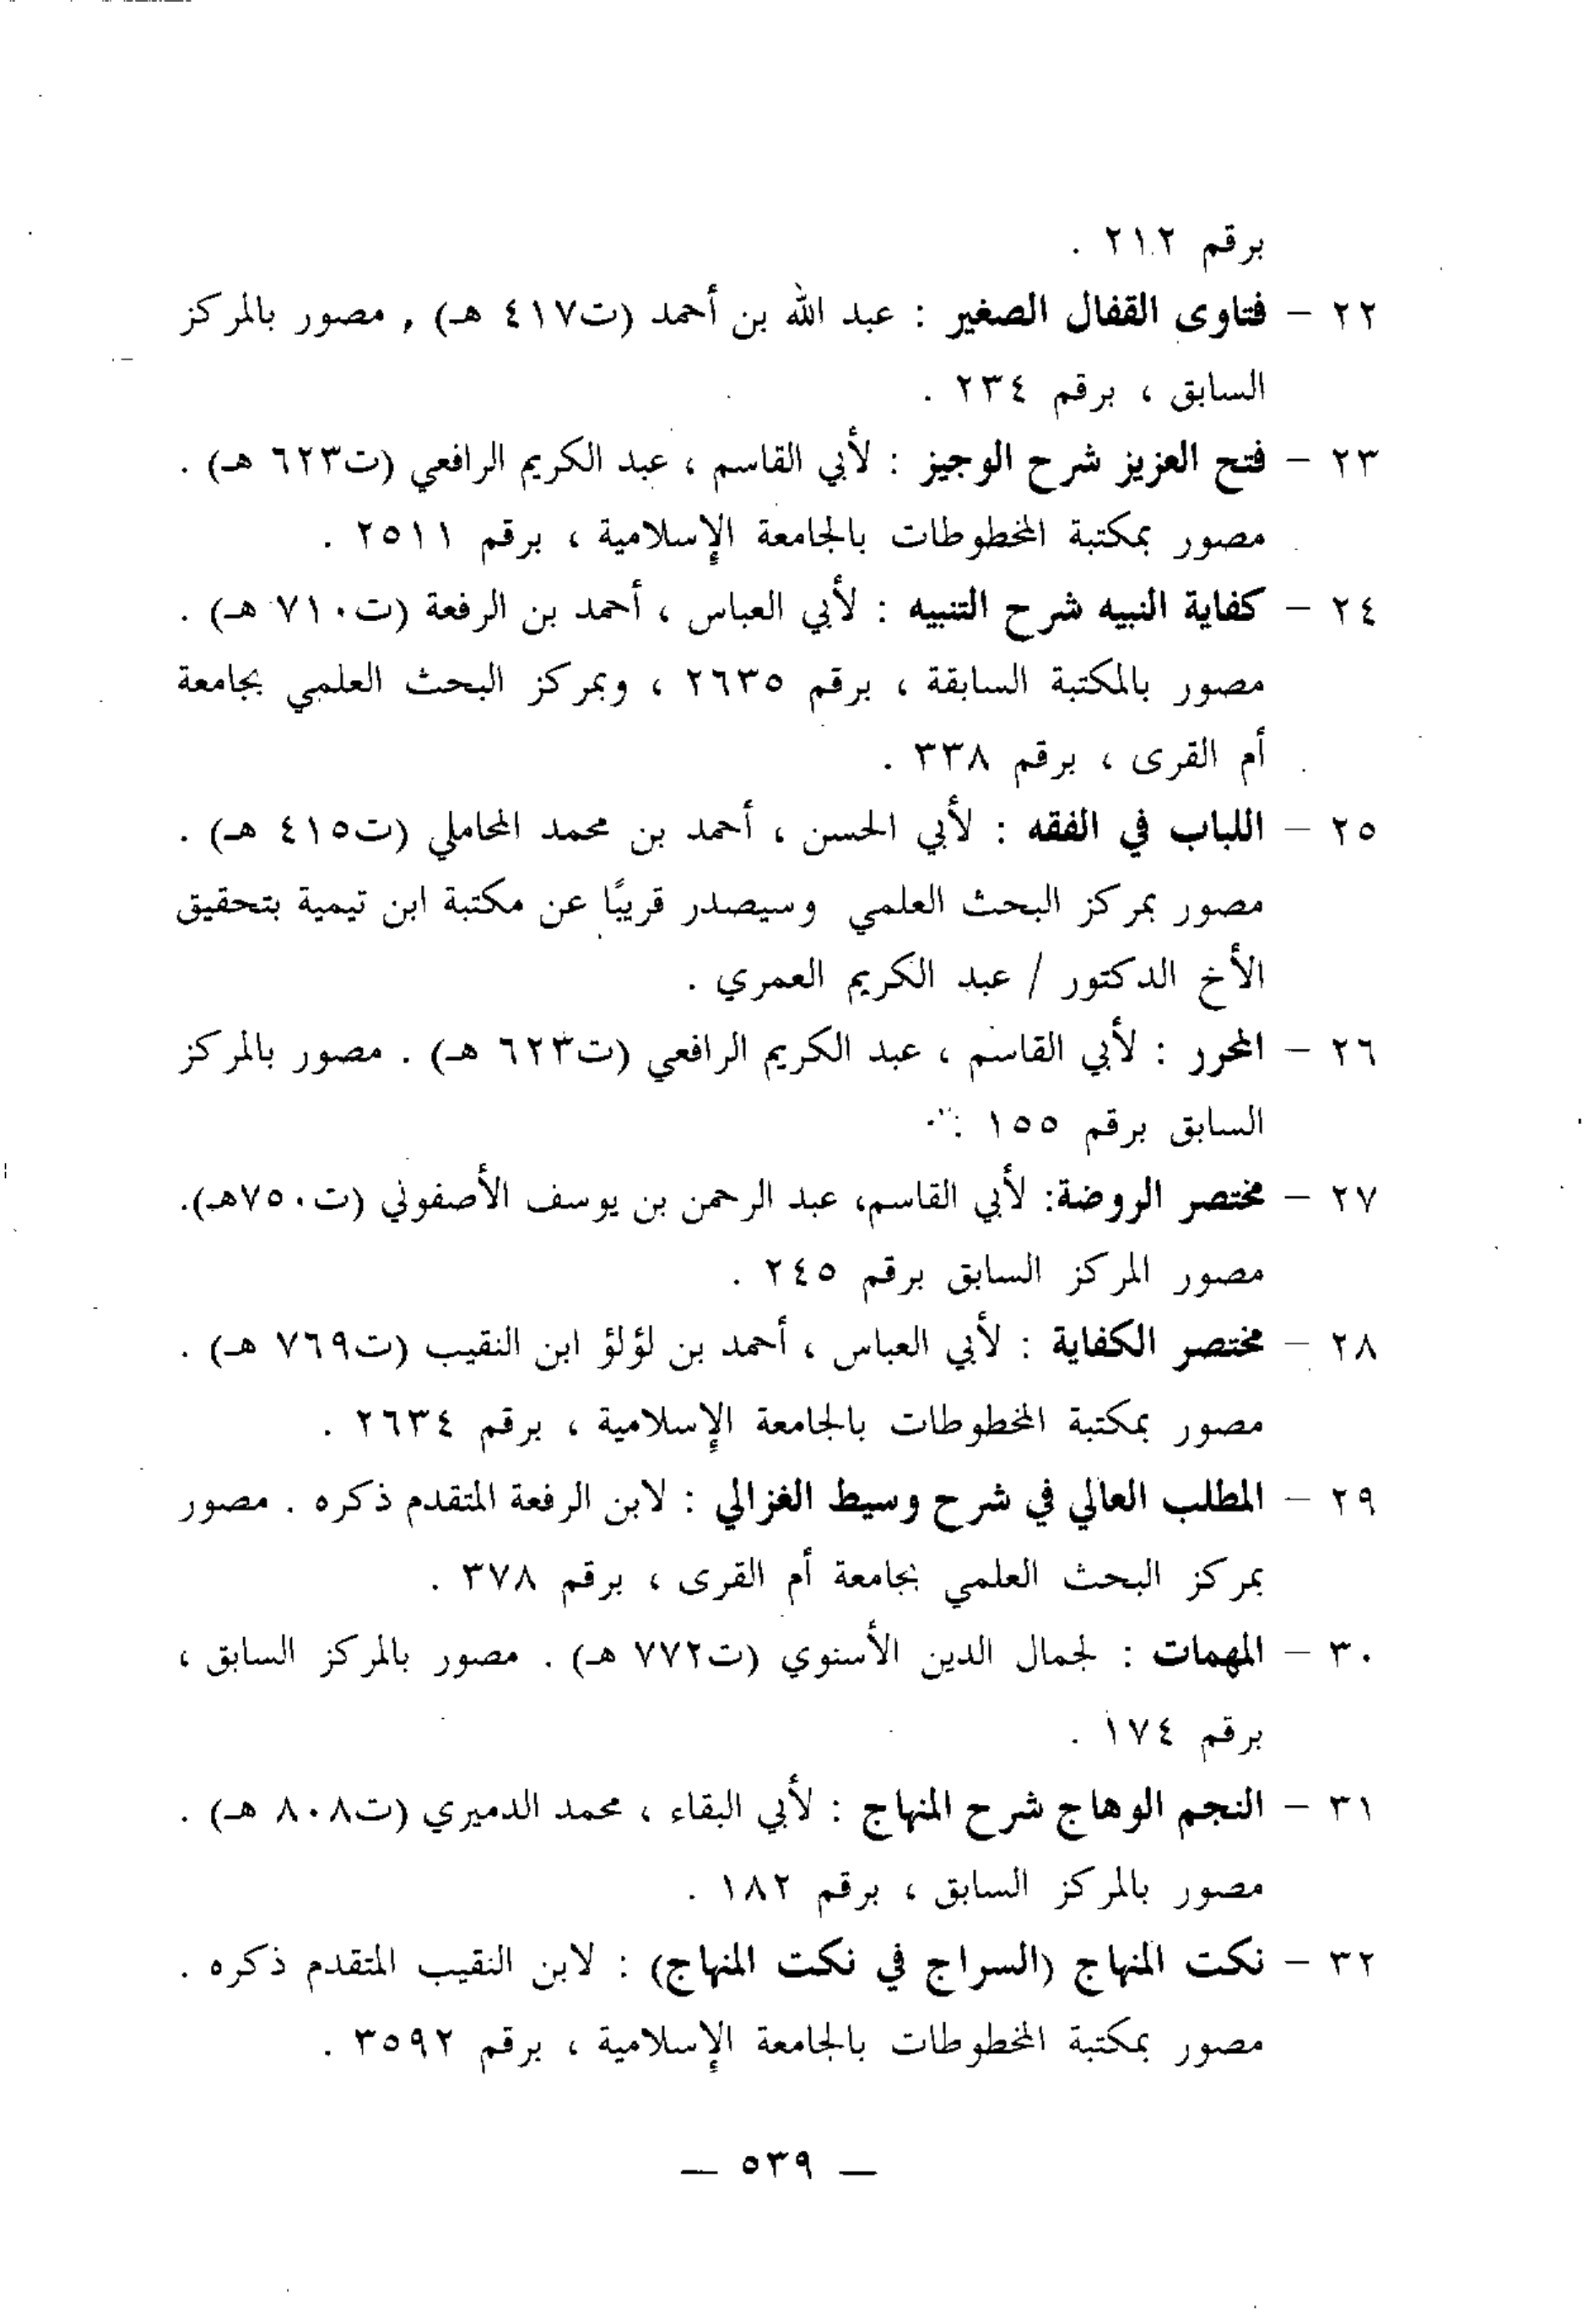 برقم ٢١٢ .
٢٢ – فتاوى القفال الصغير : عبد الله بن أحمد (ت٤١٧ هـ) , مصور بالمركز
السابق ، برقم ٢٣٤ .
٢٣ – فتح العزيز شرح الوجيز : لأبي القاسم ، عبد الكريم الرافعي (ت٦٢٣ هـ) .
مصور بمكتبة المخطوطات بالجامعة الإسلامية ، برقم ٢٥١١ .
٢٤ – كفاية النبيه شرح التنبيه : لأبي العباس ، أحمد بن الرفعة (ت٧١٠ هـ) .
مصور بالمكتبة السابقة ، برقم ٢٦٣٥ ، وبمركز البحث العلمي بجامعة
أم القرى ، برقم ٣٣٨ .
٢٥ – اللباب في الفقه : لأبي الحسن ، أحمد بن محمد المحاملي (ت٤١٥ هـ) .
مصور بمركز البحث العلمي وسيصدر قريبًا عن مكتبة ابن تيمية بتحقيق
الأخ الدكتور / عبد الكريم العمري .
٢٦ – المحرر : لأبي القاسم ، عبد الكريم الرافعي (ت٦٢٣ هـ) . مصور بالمركز
السابق برقم ١٥٥ .
٢٧ – مختصر الروضة: لأبي القاسم، عبد الرحمن بن يوسف الأصفوني (ت٧٥٠هـ).
مصور المركز السابق برقم ٢٤٥ .
٢٨ – مختصر الكفاية : لأبي العباس ، أحمد بن لؤلؤ ابن النقيب (ت٧٦٩ هـ) .
مصور بمكتبة المخطوطات بالجامعة الإسلامية ، برقم ٢٦٣٤ .
٢٩ – المطلب العالي في شرح وسيط الغزالي : لابن الرفعة المتقدم ذكره . مصور
بمركز البحث العلمي بجامعة أم القرى ، برقم ٣٧٨ .
٣٠ – المهمات : لجمال الدين الأسنوي (ت٧٧٢ هـ) . مصور بالمركز السابق ،
برقم ١٧٤ .
٣١ – النجم الوهاج شرح المنهاج : لأبي البقاء ، محمد الدميري (ت٨٠٨ هـ) .
مصور بالمركز السابق ، برقم ١٨٢ .
٣٢ – نكت المنهاج (السراج في نكت المنهاج) : لابن النقيب المتقدم ذكره .
مصور بمكتبة المخطوطات بالجامعة الإسلامية ، برقم ٣٥٩٢ .
— ٥٣٩ —